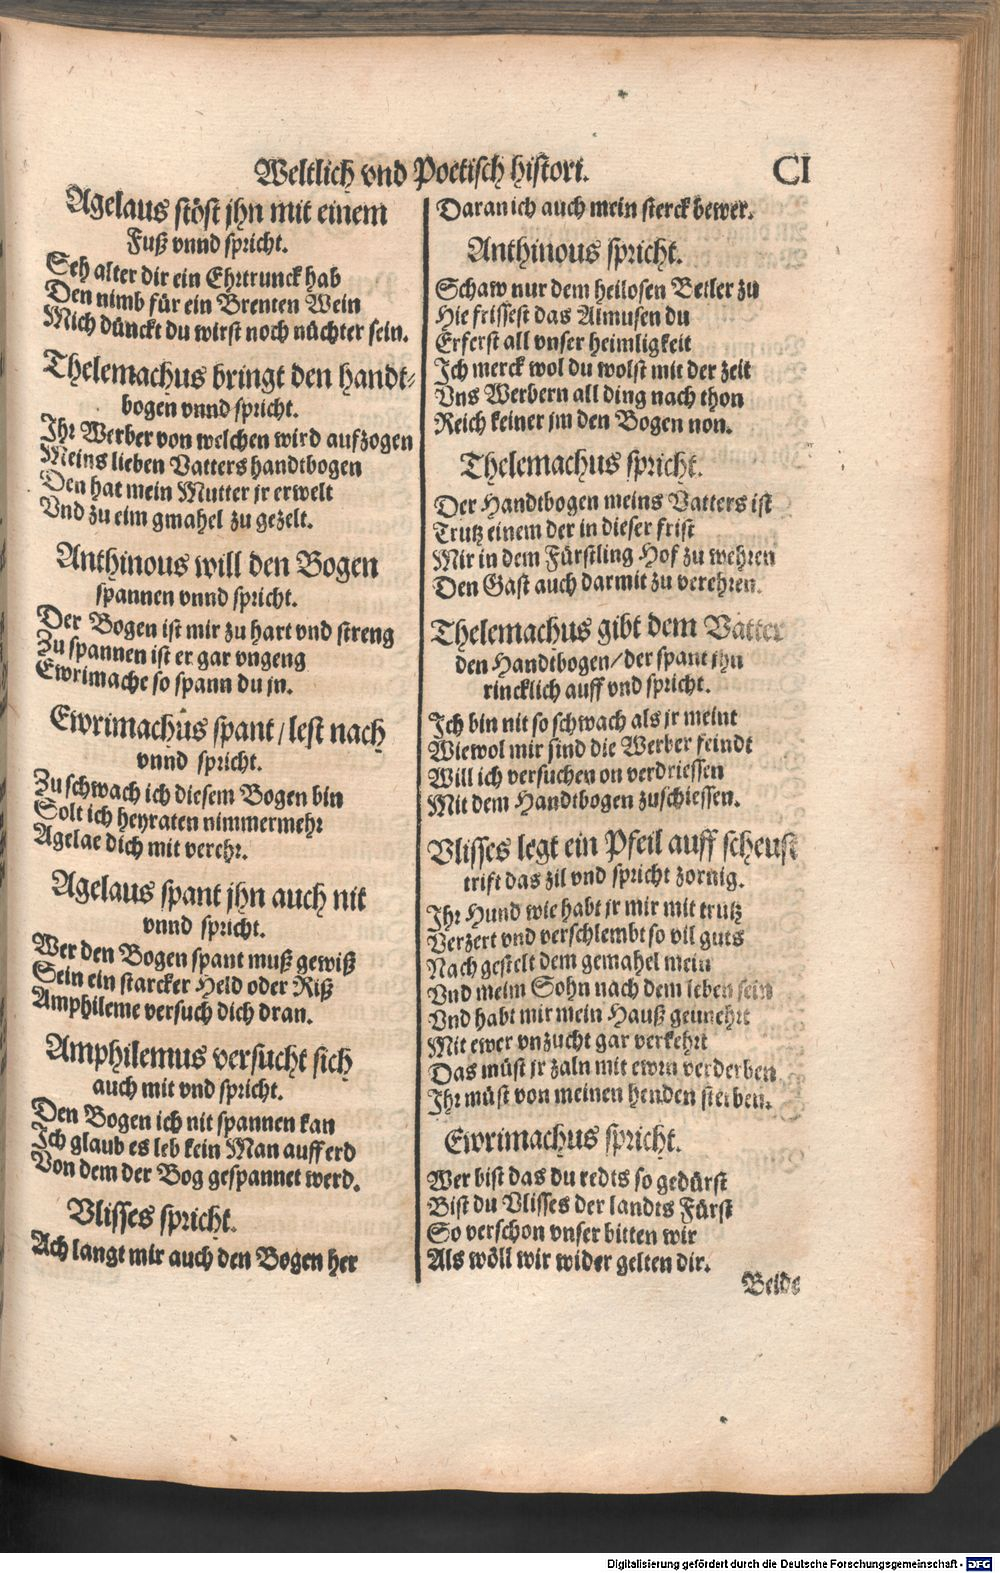 Weltlich vnd Poetisch histori.
CI
Agelaus stöst jhn mit einem
Fuß vnnd spricht.
Seh alter dir ein Ehrtrunck hab
Den nimb für ein Brenten Wein
Mich dünckt du wirst noch nüchter sein.
Thelemachus bringt den handt-
bogen vnnd spricht.
Ihr Werber von welchen wird aufzogen
Meins lieben Vatters handtbogen
Den hat mein Mutter jr erwelt
Vnd zu eim gmahel zu gezelt.
Anthinous will den Bogen
spannen vnnd spricht.
Der Bogen ist mir zu hart vnd streng
Zu spannen ist er gar vngeng
Ewrimache so spann du jn.
Ewrimachus spant / lest nach
vnnd spricht.
Zu schwach ich diesem Bogen bin
Solt ich heyraten nimmermehr
Agelae dich mit verehr.
Agelaus spant jhn auch nit
vnnd spricht.
Wer den Bogen spant muß gewiß
Sein ein starcker Held oder Riß
Amphileme versuch dich dran.
Amphilemus versucht sich
auch mit vnd spricht.
Den Bogen ich nit spannen kan
Ich glaub es leb kein Man auff erd
Von dem der Bog gespannet werd.
Vlisses spricht.
Ach langt mir auch den Bogen her
Daran ich auch mein sterck bewer.
Anthinous spricht.
Schaw nur dem heilosen Betler zu
Hie frissest das Almusen du
Erferst all vnser heimligkeit
Ich merck wol du wolst mit der zeit
Vns Werbern all ding nach thon
Reich keiner jm den Bogen non.
Thelemachus spricht.
Der Handtbogen meins Vatters ist
Trutz einem der in dieser frist
Mir in dem Fürstling Hof zu wehren
Den Gast auch darmit zu verehren.
Thelemachus gibt dem Vatter
den Handtbogen / der spant jhn
rincklich auff vnd spricht.
Ich bin nit so schwach als jr meint
Wiewol mir sind die Werber feindt
Will ich versuchen on verdriessen
Mit dem Handtbogen zuschiessen.
Vlisses legt ein Pfeil auff scheust
trift das zil vnd spricht zornig.
Ihr Hund wie habt jr mir mit trutz
Verzert vnd verschlembt so vil guts
Nach gestelt dem gemahel mein
Vnd meim Sohn nach dem leben sein
Vnd habt mir mein Hauß geunehrt
Mit ewer vnzucht gar verkehrt
Das müst jr zaln mit ewrn verderben
Ihr müst von meinen henden sterben.
Ewrimachus spricht.
Wer bist das du redts so gedürst
Bist du Vlisses der landts Fürst
So verschon vnser bitten wir
Als wöll wir wider gelten dir.
Beide
Digitalisierung gefördert durch die Deutsche Forschungsgemeinschaft - DFG